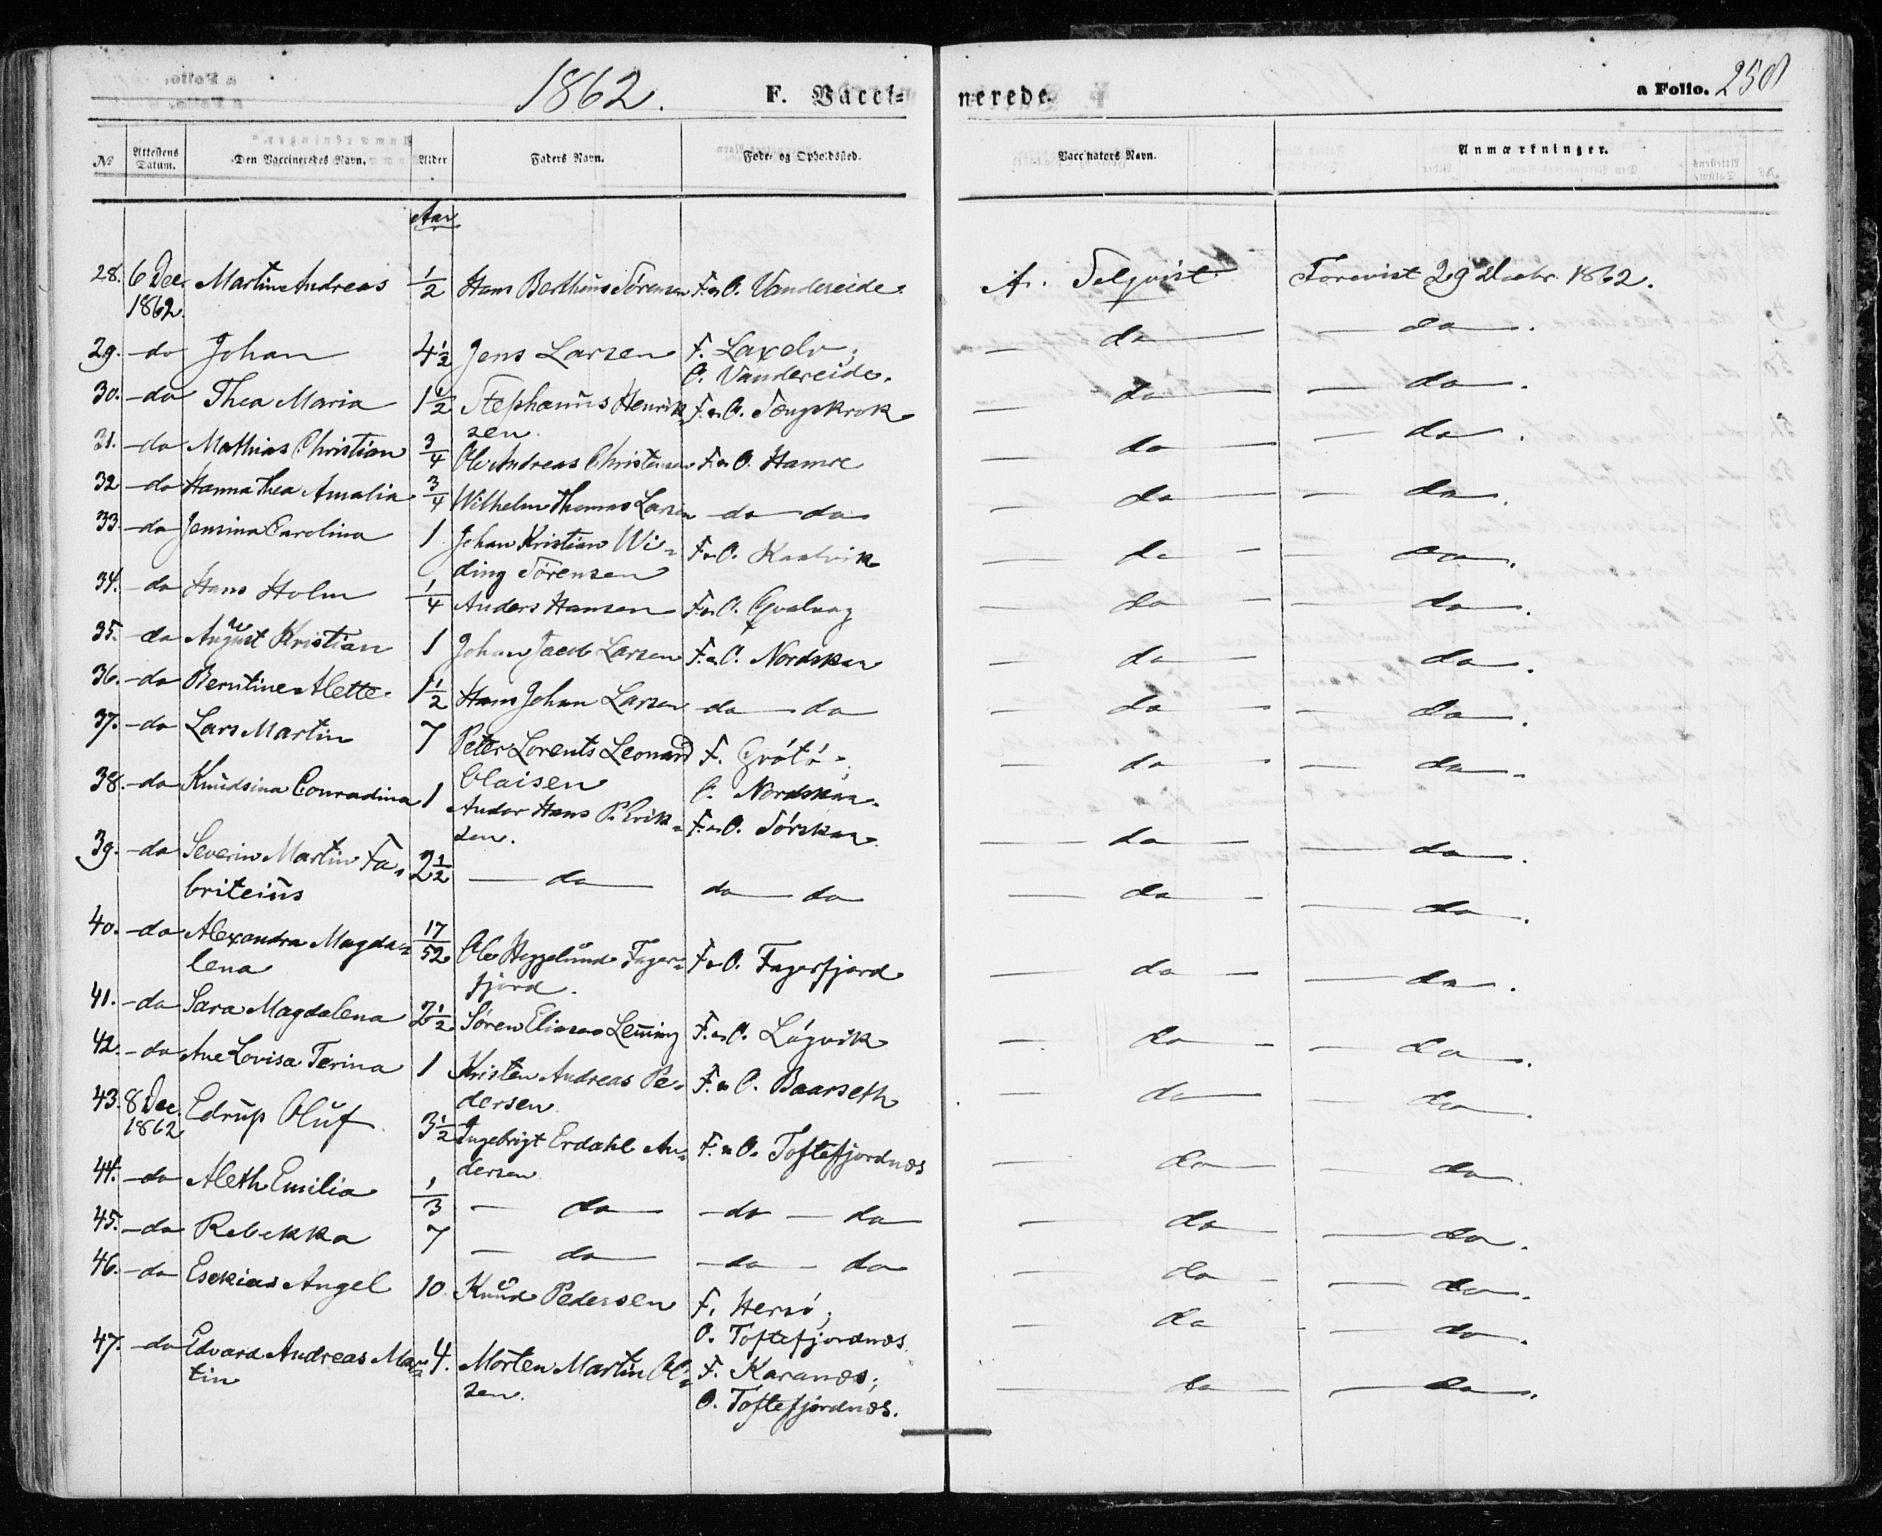 1862. F. Vacci- nerede. a Folio. 250
No Attestens Datum. Den Vaccineredes Navn. Alder Faders Navn. Føde- og Opholdssted. Vaccinators Navn. Anmærkninger.
Aar
28. 6 Dec. 1862. Martine Andreas 1/2 Hans Bertheus Sörensen F. o O. Vandereide A. Selqvist Forevist 29 Decbr. 1862.
29. -do Johan 4 1/2 Jens Larsen F. Laxelv; — do — — do — .
O. Vandereide.
30. -do Thea Maria 1 1/2 Stephanus Henrik- F. o O. Tengskrok — do — — do — .
sen.
31. -do Mathias Christian 3/4 Ole Andreas Christensen F. o O. Hamre — do — — do — .
32 -do Hanna Thea Amalia 3/4 Wilhelm Thomas Larsen — do — do — do — — do — .
33. -do Jensina Carolina 1 Johan Kristian Wi- F. o O. Kaalvik — do — — do — .
ding Sörensen
34. -do Hans Holm 1/4 Anders Hansen F. o O. Gvalvag — do — — do — .
35. -do August Kristian 1 Johan Jacob Larsen F. o O. Nordskar — do — — do — .
36. -do Berntine Alette 1 1/2 Hans Johan Larsen — do — do — do — — do — .
37. -do Lars Martin 7 Peter Lorents Leonard F. Grötö; — do — — do —
Olaisen O. Nordskar.
38. -do Knudsina Conradina 1 Andor Hans P. Erik- F. o O. Sörskar — do — — do — .
sen.
39. -do Severin Martin Fa- 2 1/2 — do — do — do — do — — do — .
briteius
40. -do Alexandra Magda- 17/52 Ole Heggelund Fager- F. o O. Fagerfjord — do — — do — .
lena fjord.
41. -do Sara Magdalena 2 1/2 Sören Eliasen Leming F. o O. Lögvik — do — — do — .
42. -do Ane Lovisa Terina 1 Kristen Andreas Pe- F. o O. Baarseth — do — — do — .
dersen
43. 8 Dec. 1862 Edrup Oluf 3 1/2 Ingebrigt Erdahl An- F. o O. Toftefjordnæs — do — — do — .
dersen
44. -do Aleth Emilia 1/3 — do — -do — do — do — — do — .
45. -do Rebekka 7 — do — -do — do — do — — do — .
46. -do Esekias Angel 10 Knud Pedersen F. Hersö; — do — — do — .
O. Toftefjordnæs
47. -do Edvard Andreas Mar- 4. Morten Martin Ol- F. Karanæs; — do — — do — .
tin sen. O. Toftefjordnæs.